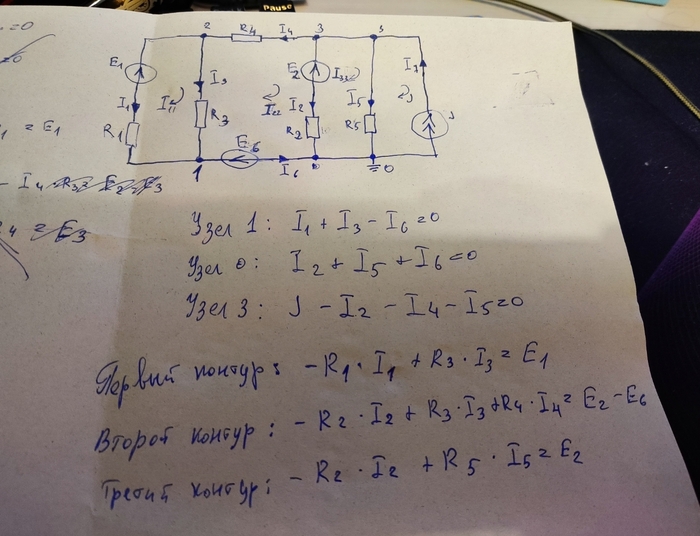 Pause
=0
2 R4 I4 3 3
E1 I3 E2 I33 I7
I1 I11 R3 I22 I2 I5 J
R1 R2 R5
1 E6 I6 0 0
1 = E1
- I4 R3 E2 E3
4 = E3
Узел 1: I1 + I3 - I6 = 0
Узел 0: I2 + I5 + I6 = 0
Узел 3: J - I2 - I4 - I5 = 0
Первый контур: - R1 · I1 + R3 · I3 = E1
Второй контур: - R2 · I2 + R3 · I3 + R4 · I4 = E2 - E6
Третий контур: - R2 · I2 + R5 · I5 = E2